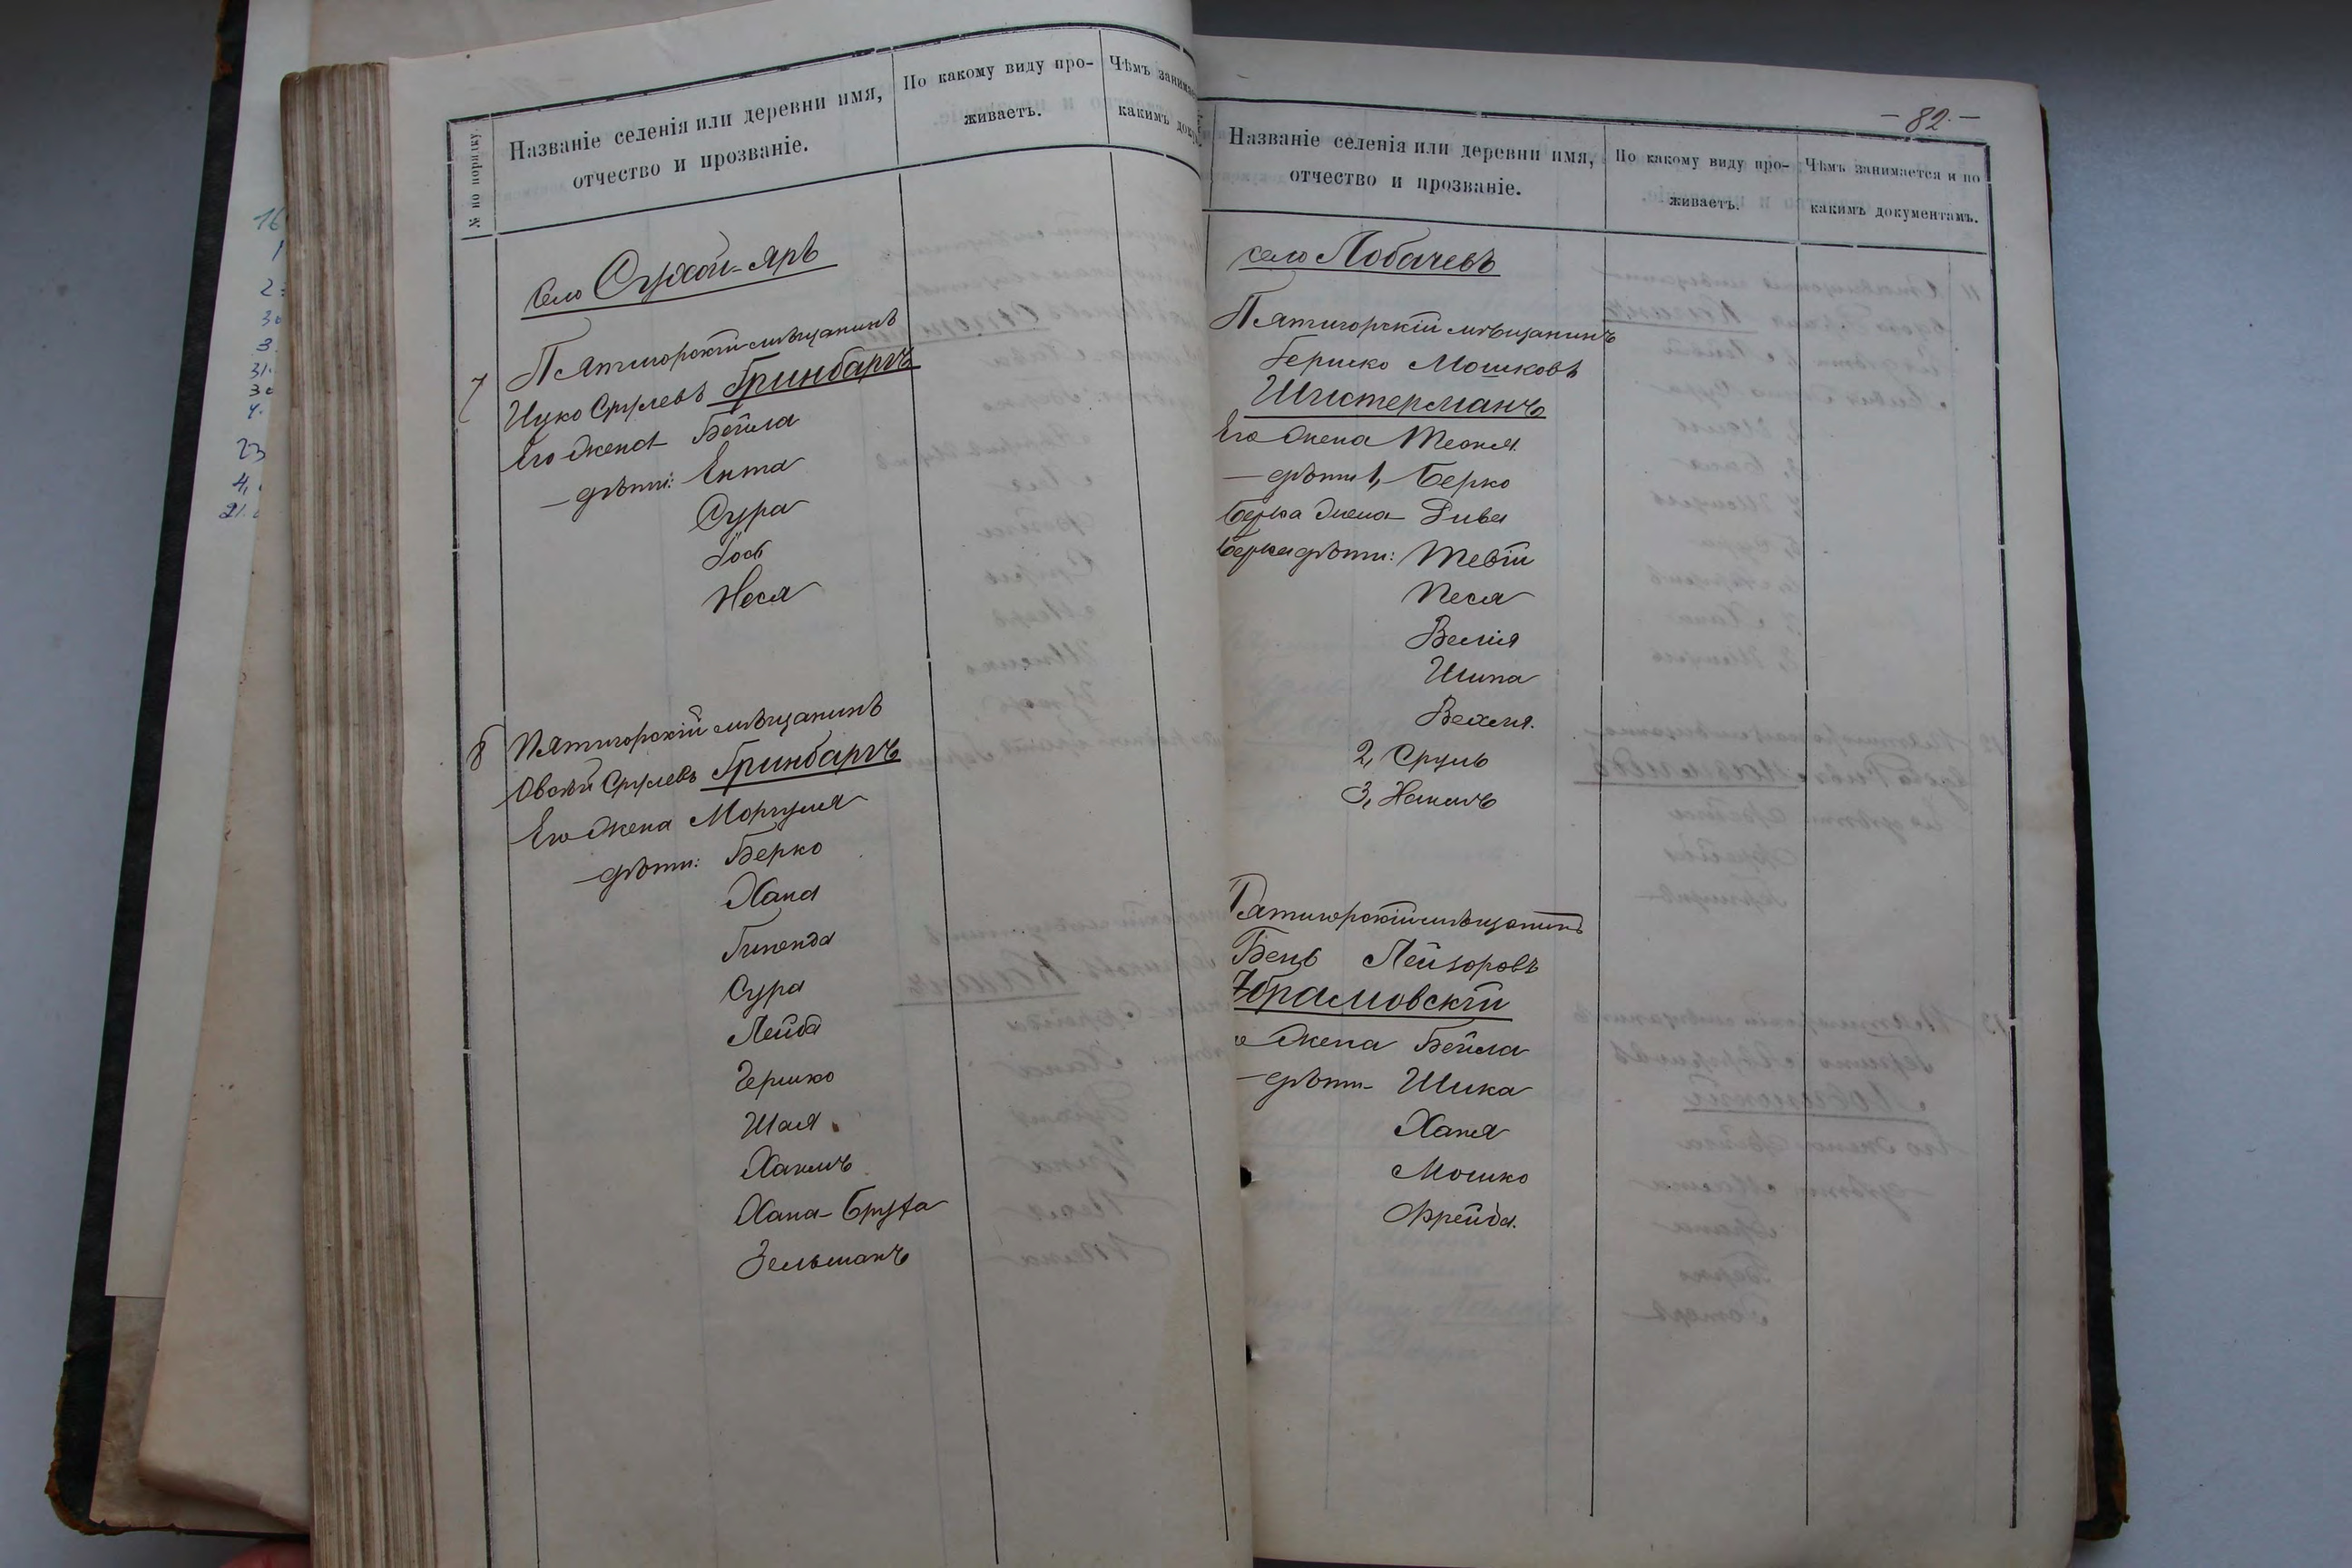 № по порядку.
Названіе селенія или деревни имя,
отчество и прозваніе.
По какому виду про-
живаетъ.
Чѣмъ занимае
какимъ доку
Село Сухой-Яръ
7
Пятигорскій мѣщанинъ
Ицко Срулевъ Гринбаргъ
Его жена Бейла
– дѣти: Ента
Сура
Іось
Неся
8
Пятигорскій мѣщанинъ
Овсѣй Срулевъ Гринбаргъ
Его жена Моргуля
– дѣти: Берко
Хана
Гиненда
Сура
Лейба
Гершко
Шая
Ханимъ
Хана-Бруха
Зельманъ
– 82. –
Названіе селенія или деревни имя,
отчество и прозваніе.
По какому виду про-
живаетъ.
Чѣмъ занимается и по
какимъ документамъ.
село Лобачевъ
Пятигорскій мѣщанинъ
Гершко Мошковъ
Шистерманъ
Его жена
– дѣти 1, Берко
Берка жена
Берка дѣти: Тевій
Песя
Велія
Шипа
2, Сруль
3,
Пятигорскій мѣщанинъ
Бень Лейзоровъ
Абрамовскій
жена Бейла
– дѣти – Шика
Ханя
Мошко
Фрейда.
16
1
2
30
3
31
30
4.
23
4,
21.